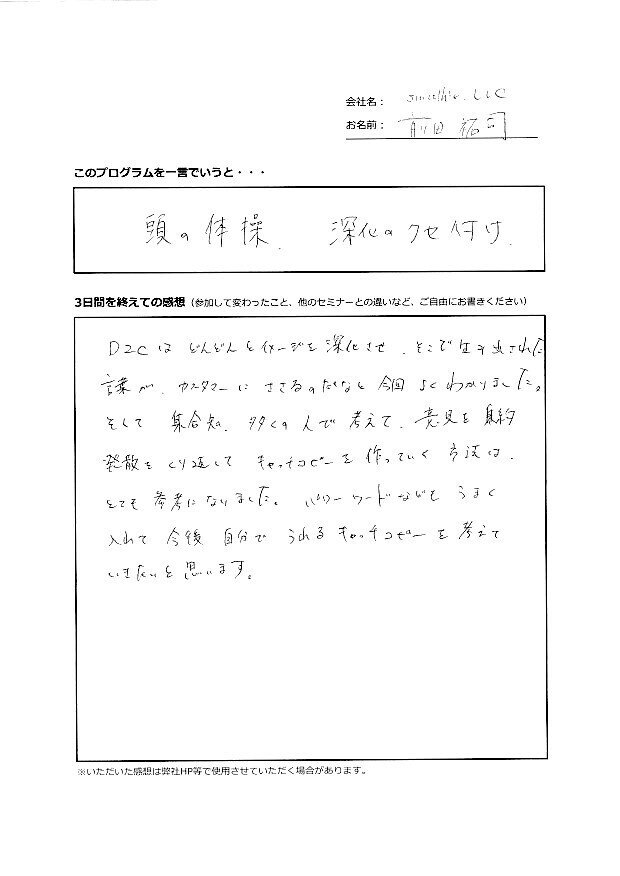 会社名： LLC
お名前： 前田 祐司
このプログラムを一言でいうと・・・
頭の体操. 深化のクセ付け.
3日間を終えての感想（参加して変わったこと、他のセミナーとの違いなど、ご自由にお書きください）
D2Cはどんどんとイメージを深化させ、そこで生み出された
言葉が、カスタマーにささるのだなと今回よくわかりました。
そして集合知、多くの人で考えて、意見を集約
発散をくり返してキャッチコピーを作っていく方法は、
とても参考になりました。パワーワードなどもうまく
入れて今後自分でうれるキャッチコピーを考えて
いきたいと思います。
※いただいた感想は弊社HP等で使用させていただく場合があります。